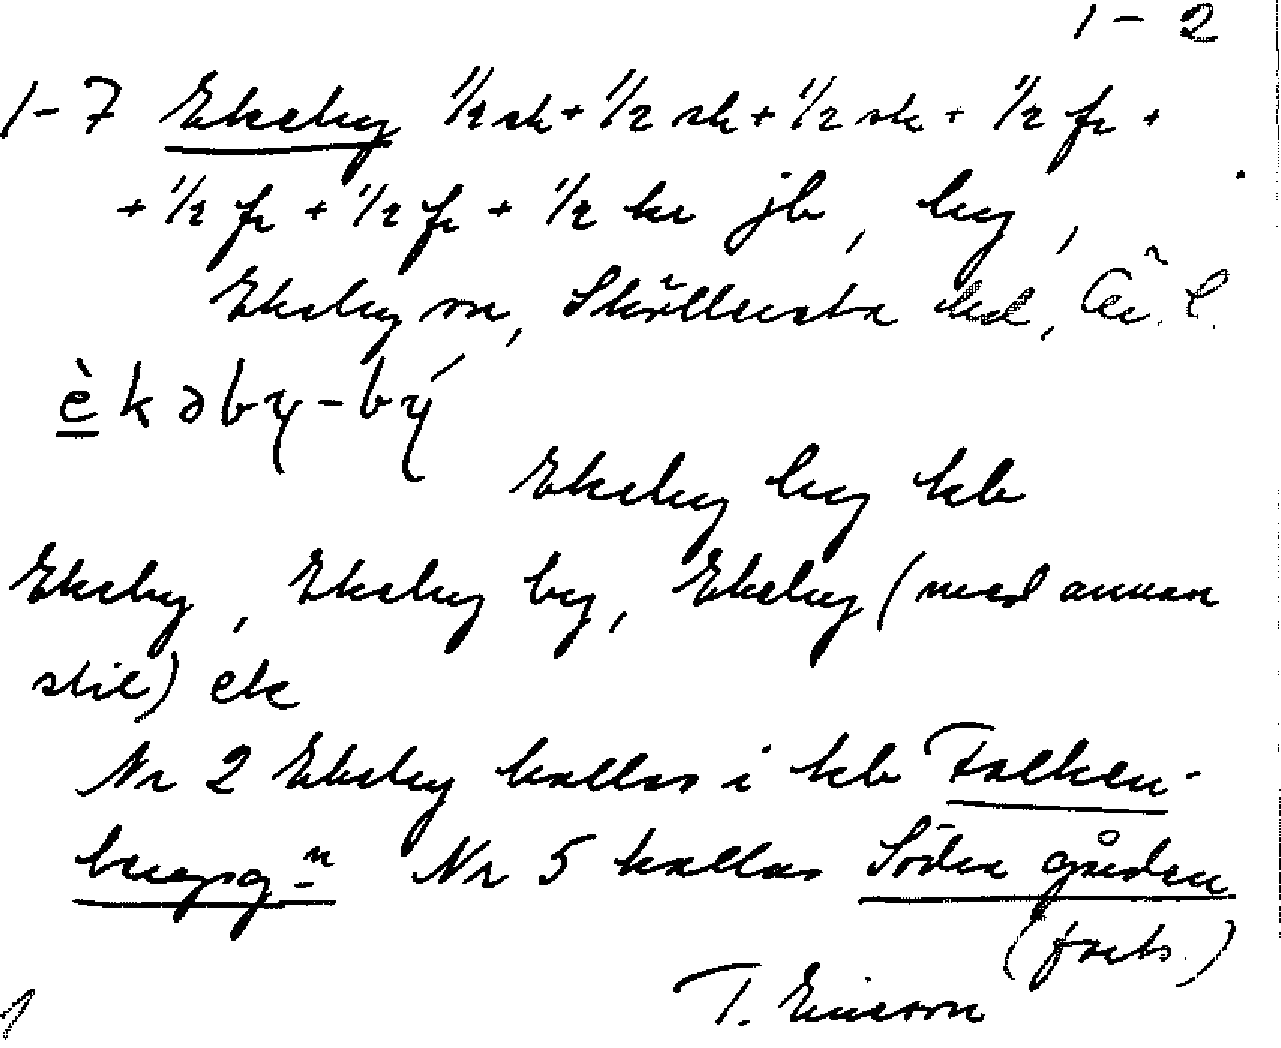 1-2
1-7 Ekeby 1/2 sk + 1/2 sk + 1/2 sk + 1/2 fr +
+ 1/2 fr + 1/2 fr + 1/2 kr jb, by,
Ekeby sn, Sköllersta hd, Ör. l.
èkəby-bý
Ekeby by kb
Ekeby, Ekeby by, Ekeby (med annan
stil) ek
Nr 2 Ekeby kallas i kb Falken-
bergsgn Nr 5 kallas Södra gården
(forts.)
T. Ericson